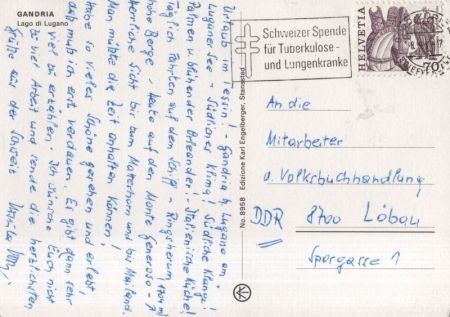 GANDRIA
Lago di Lugano
Urlaub im Tessin! - Gandria b. Lugano am
Luganer See - Südliches Klima! Südliche Klänge!
Palmen u. blühender Oleander! - Italienische Küche!
Täglich Fahrten auf dem Schiff - Ringsherum
hohe Berge - heute auf den Monte Generoso - 1704 m)
Herrliche Sicht bis zum Materhorn und bis Mailand.
Man müßte die Zeit anhalten können!
Habe so vieles Schöne gesehen und erlebt
daß muß ich erst verdauen. Es gibt dann sehr
viel zu erzählen. Ich wünsche Euch nicht
zu viel Arbeit und sende die herzlichsten
Grüße aus der Schweiz
No. 8958 Edizione Karl Engelberger, Stansstad
Schweizer Spende
für Tuberkulose-
und Lungenkranke
HELVETIA
70
An die
Mitarbeiter
d. Volksbuchhandlung
DDR 8700 Löbau
Sporgasse 1